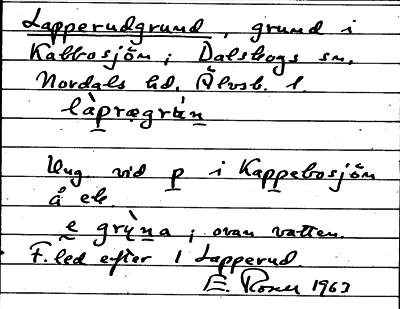 Lapperudgrund, grund i
Kabbosjön; Dalskogs sn,
Nordals hd. Älvsb. l
làprægrùn
Ung. vid p i Kappebosjön
å ek.
e grùna; ovan vatten.
F. led efter 1 Lapperud.
E. Rosell 1963